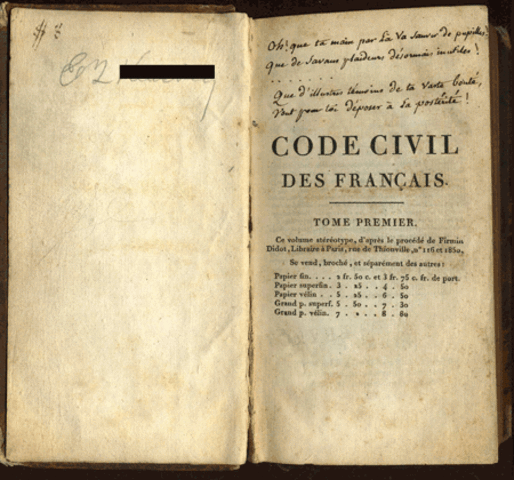 Oh! que ta main par là va sauver de pupilles,
que de savans plaideurs désormais inutiles!
. . . . . . .
Que d'illustres témoins de ta vaste bonté,
Vont pour toi déposer à la postérité!
CODE CIVIL
DES FRANÇAIS.
TOME PREMIER.
Ce volume stéréotype, d'après le procédé de Firmin
Didot, Libraire à Paris, rue de Thionville, n° 116 et 1850,
Se vend, broché, et séparément des autres:
Papier fin. . . . 2 fr. 50 c. et 3 fr. 75 c. fr. de port.
Papier superfin. 3 . 25 . . 4 . 50
Papier vélin . . 5 . 25 . . 6 . 50
Grand p. superf. 5 . 50 . . 7 . 30
Grand p. vélin. 7 . » . . 8 . 80